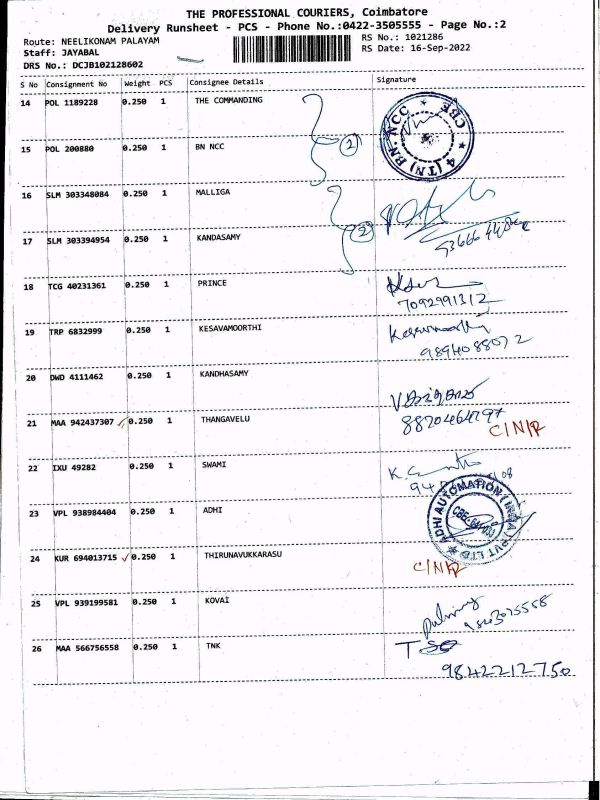 THE PROFESSIONAL COURIERS, Coimbatore
Delivery Runsheet - PCS - Phone No.:0422-3505555 - Page No.:2
Route: NEELIKONAM PALAYAM
RS No.: 1021286
Staff: JAYABAL
RS Date: 16-Sep-2022
DRS No.: DCJB102128602
S No Consignment No Weight PCS Consignee Details Signature
14 POL 1189228 0.250 1 THE COMMANDING
4 (TN) BN NCC ★ CBE ★
15 POL 200880 0.250 1 BN NCC 2
16 SLM 303348084 0.250 1 MALLIGA
17 SLM 303394954 0.250 1 KANDASAMY 2
18 TCG 40231361 0.250 1 PRINCE
7092991312
19 TRP 6832999 0.250 1 KESAVAMOORTHI
9894088072
20 DWD 4111462 0.250 1 KANDHASAMY
21 MAA 942437307 0.250 1 THANGAVELU
8870464797 C/N/R
22 IXU 49282 0.250 1 SWAMI
23 VPL 938984404 0.250 1 ADHI
ADHI AUTOMATION (INDIA) PVT LTD ★
24 KUR 694013715 0.250 1 THIRUNAVUKKARASU C/N/R
25 VPL 939199581 0.250 1 KOVAI
26 MAA 566756558 0.250 1 TNK
9842212750